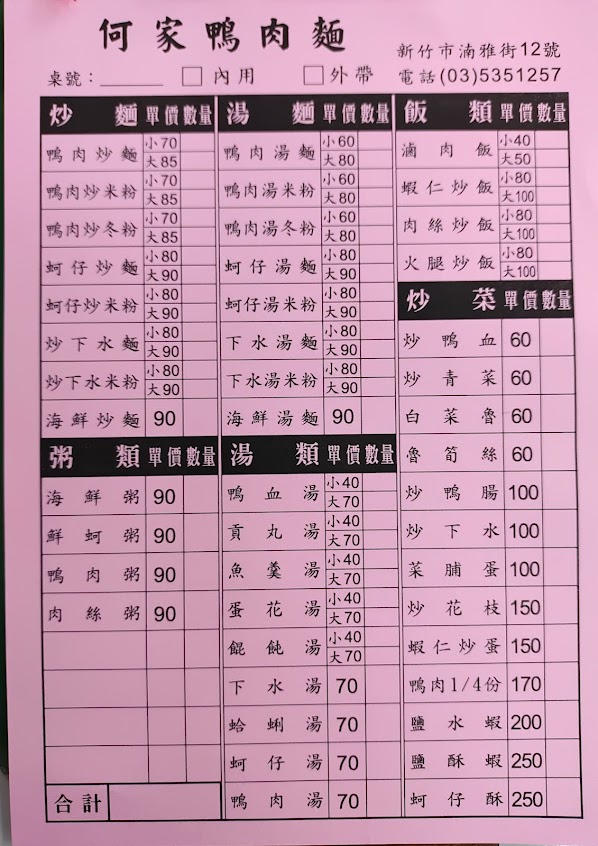 何家鴨肉麵
新竹市湳雅街12號
桌號：______ □內用 □外帶 電話(03)5351257
炒麵 單價 數量
鴨肉炒麵 小70 大85
鴨肉炒米粉 小70 大85
鴨肉炒冬粉 小70 大85
蚵仔炒麵 小80 大90
蚵仔炒米粉 小80 大90
炒下水麵 小80 大90
炒下水米粉 小80 大90
海鮮炒麵 90
粥類 單價 數量
海鮮粥 90
鮮蚵粥 90
鴨肉粥 90
肉絲粥 90
合計
湯麵 單價 數量
鴨肉湯麵 小60 大80
鴨肉湯米粉 小60 大80
鴨肉湯冬粉 小60 大80
蚵仔湯麵 小80 大90
蚵仔湯米粉 小80 大90
下水湯麵 小80 大90
下水湯米粉 小80 大90
海鮮湯麵 90
湯類 單價 數量
鴨血湯 小40 大70
貢丸湯 小40 大70
魚羹湯 小40 大70
蛋花湯 小40 大70
餛飩湯 小40 大70
下水湯 70
蛤蜊湯 70
蚵仔湯 70
鴨肉湯 70
飯類 單價 數量
滷肉飯 小40 大50
蝦仁炒飯 小80 大100
肉絲炒飯 小80 大100
火腿炒飯 小80 大100
炒菜 單價 數量
炒鴨血 60
炒青菜 60
白菜魯 60
魯筍絲 60
炒鴨腸 100
炒下水 100
菜脯蛋 100
炒花枝 150
蝦仁炒蛋 150
鴨肉1/4份 170
鹽水蝦 200
鹽酥蝦 250
蚵仔酥 250